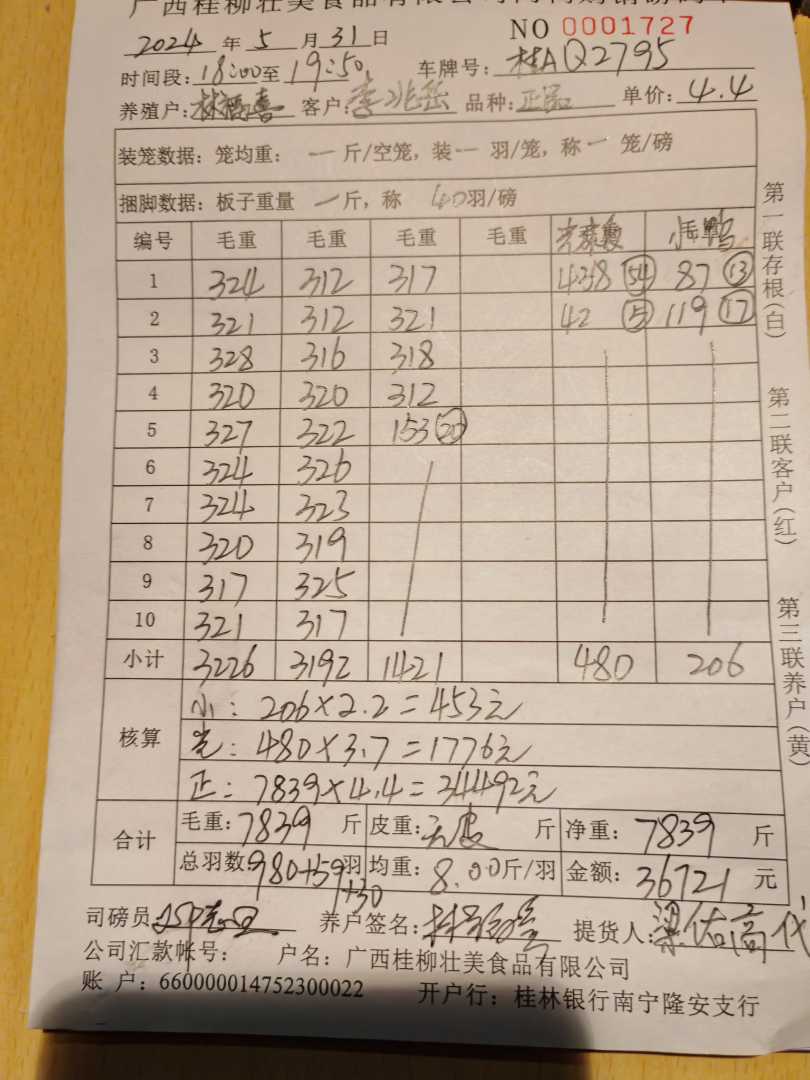 广西桂柳壮美食品有限公司
NO 0001727
2024 年 5 月 31 日
时间段: 18:00至 19:50 车牌号: 桂A Q2795
养殖户: 客户: 李兆岳 品种: 正品 单价: 4.4
装笼数据: 笼均重: 一 斤/空笼, 装 一 羽/笼, 称 一 笼/磅
捆脚数据: 板子重量 一 斤, 称 40 羽/磅
编号 毛重 毛重 毛重 毛重 小毛鸭
1 324 312 317 438 (54) 87 (13)
2 321 312 321 42 (5) 119 (17)
3 328 316 318
4 320 320 312
5 327 322 153 (20)
6 324 326
7 324 323
8 320 319
9 317 325
10 321 317
小计 3226 3192 1421 480 206
核算 小: 206×2.2=453元
光: 480×3.7=1776元
正: 7839×4.4=34492元
合计 毛重: 7839 斤 皮重: 斤 净重: 7839 斤
总羽数: 980+59+30 羽 均重: 8.00 斤/羽 金额: 36721 元
司磅员: 养户签名: 提货人: 梁佑高代
公司汇款帐号: 户名: 广西桂柳壮美食品有限公司
账 户: 660000014752300022 开户行: 桂林银行南宁隆安支行
第一联存根(白) 第二联客户(红) 第三联养户(黄)